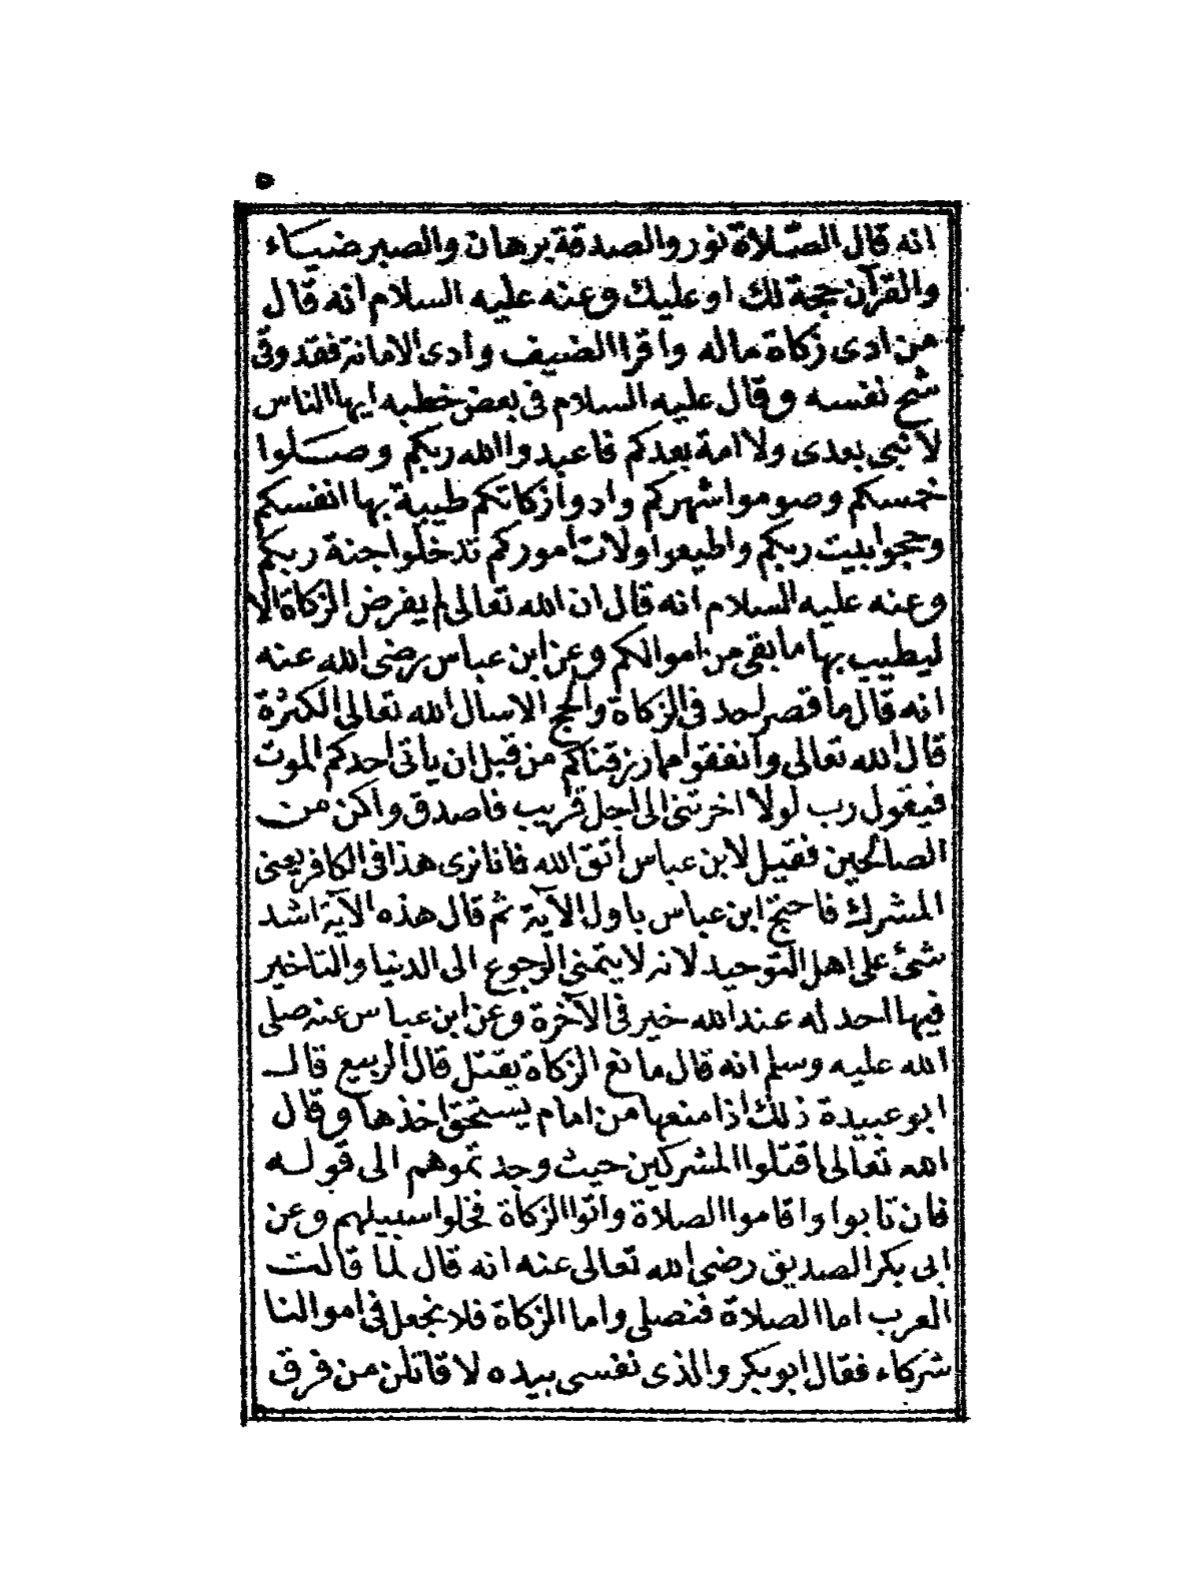 ٥
انه قال الصّلاة نور والصدقة برهان والصبر ضياء
والقرآن حجة لك او عليك وعنه عليه السلام انه قال
من ادى زكاة ماله واقرا الضيف وأدى الامانة فقد وقى
شح نفسه وقال عليه السلام فى بعض خطبه ايها الناس
لا نبى بعدى ولا امة بعدكم فاعبدوا الله ربكم وصلوا
خمسكم وصوموا شهركم وادوا زكاتكم طيبة بها انفسكم
وحجوا بيت ربكم واطيعوا ولات أموركم تدخلوا جنة ربكم
وعنه عليه السلام انه قال ان الله تعالى لم يفرض الزكاة الا
ليطيب بها ما بقى من اموالكم وعن ابن عباس رضى الله عنه
انه قال ما قصر احد فى الزكاة والحج الا سال الله تعالى الكثرة
قال الله تعالى وانفقوا مما رزقناكم من قبل ان ياتى احدكم الموت
فيقول رب لولا اخرتنى الى اجل قريب فاصدق واكن من
الصالحين فقيل لابن عباس اتق الله فانا نرى هذا فى الكافر يعنى
المشرك فاحتج ابن عباس باول الآية ثم قال هذه الآية اشد
شئ على اهل التوحيد لانه لا يتمنى الرجوع الى الدنيا والتاخير
فيها احد له عند الله خير فى الآخرة وعن ابن عباس عنه صلى
الله عليه وسلم انه قال مانع الزكاة يقتل قال الربيع قال
ابو عبيدة ذلك اذا منعها من امام يستحق اخذها وقال
الله تعالى اقتلوا المشركين حيث وجدتموهم الى قوله
فان تابوا واقاموا الصلاة واتوا الزكاة فخلوا سبيلهم وعن
ابى بكر الصديق رضى الله تعالى عنه انه قال لما قالت
العرب اما الصلاة فنصلى واما الزكاة فلا نجعل فى اموالنا
شركاء فقال ابو بكر والذى نفسى بيده لاقاتلن من فرق